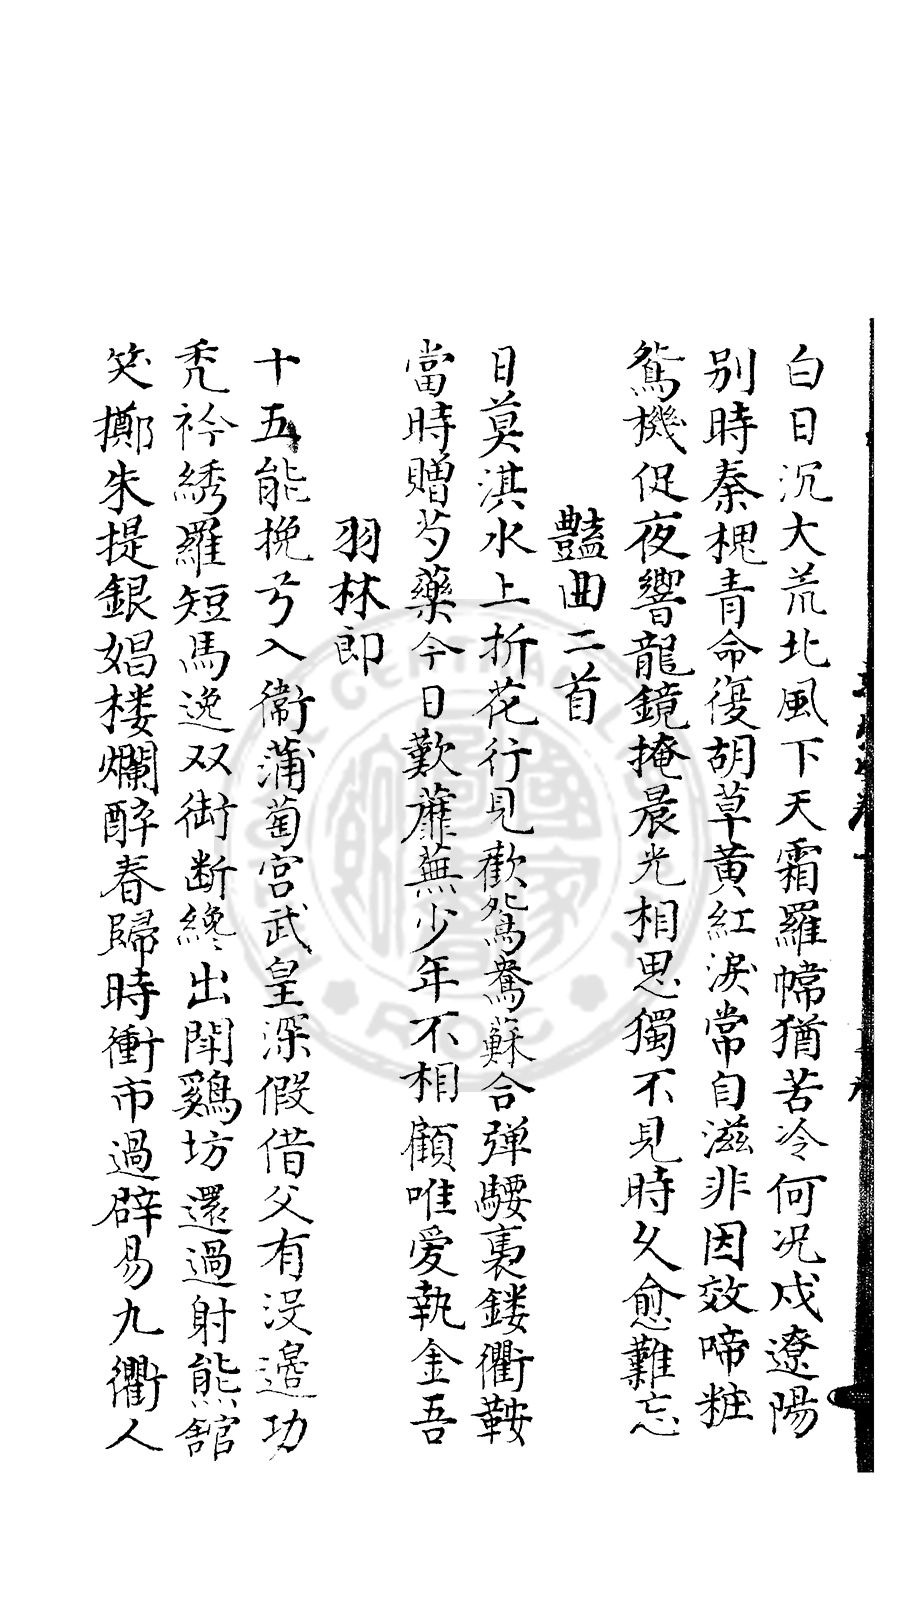 白日沉大荒北風下天霜羅幃猶苦冷何况戍遼陽
别時秦槐青命復胡草黄紅淚常自滋非因效啼粧
鴛機促夜響龍鏡掩晨光相思獨不見時久愈難忘
豔曲二首
日莫淇水上折花行見歡鴛鴦蘇合弹騕裏鏤衢鞍
當時贈芍藥今日歎蘼蕪少年不相顧唯爱執金吾
羽林郎
十五能挽弓入衛蒲萄宫武皇深假借父有没邉功
禿衿綉羅短馬逸双街断纔出閗鷄坊還過射熊舘
笑擲朱提銀娼楼爛醉春歸時衝市過辟易九衢人
NATIONAL CENTRAL LIBRARY
R.O.C